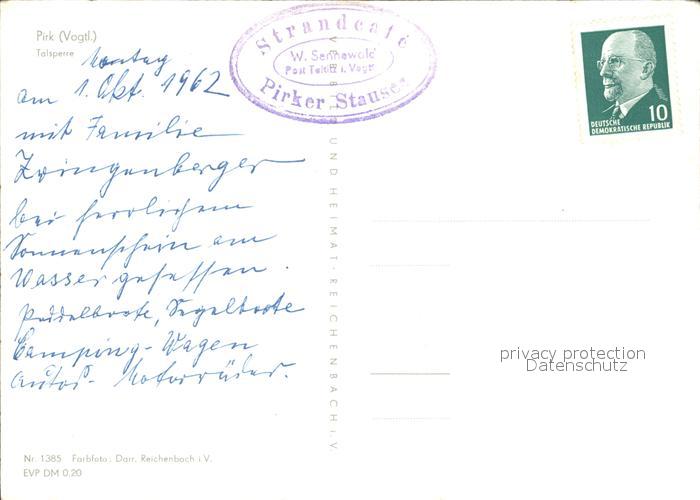 Pirk (Vogtl.)
Talsperre
Montag
am 1. Okt. 1962
mit Familie
Zwingenberger
bei herrlichem
Sonnenschein am
Wasser gesessen.
Paddelboote, Segelboote
Camping-Wagen
Autos- Motorräder.
Nr. 1385 Farbfoto: Darr, Reichenbach i. V.
EVP DM 0,20
Strandcafé
W. Sennewald
Post Taltitz i. Vogtl.
Pirker Stausee
UND HEIMAT · REICHENBACH i. V.
10
DEUTSCHE
DEMOKRATISCHE REPUBLIK
privacy protection
Datenschutz